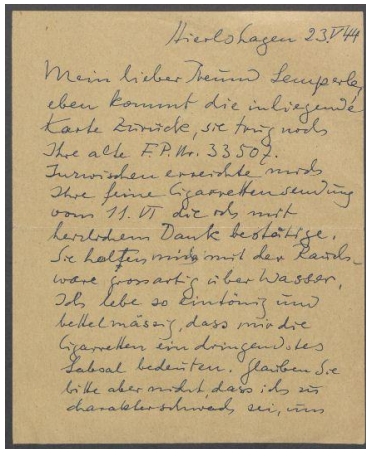 Hierlshagen 23.V 44
Mein lieber Freund Lemperle,
eben kommt die inliegende
Karte zurück, sie trug noch
Ihre alte F.P.Nr. 33507.
Inzwischen erreichte mich
Ihre feine Cigarettensendung
vom 11. VI die ich mit
herzlichem Dank bestätige.
Sie halten mich mit der Rauch-
ware grossartig über Wasser.
Ich lebe so eintönig und
bettelmässig, dass mir die
Cigaretten ein dringendstes
Labsal bedeuten. Glauben Sie
bitte aber nicht, dass ich zu
charakterschwach sei, um